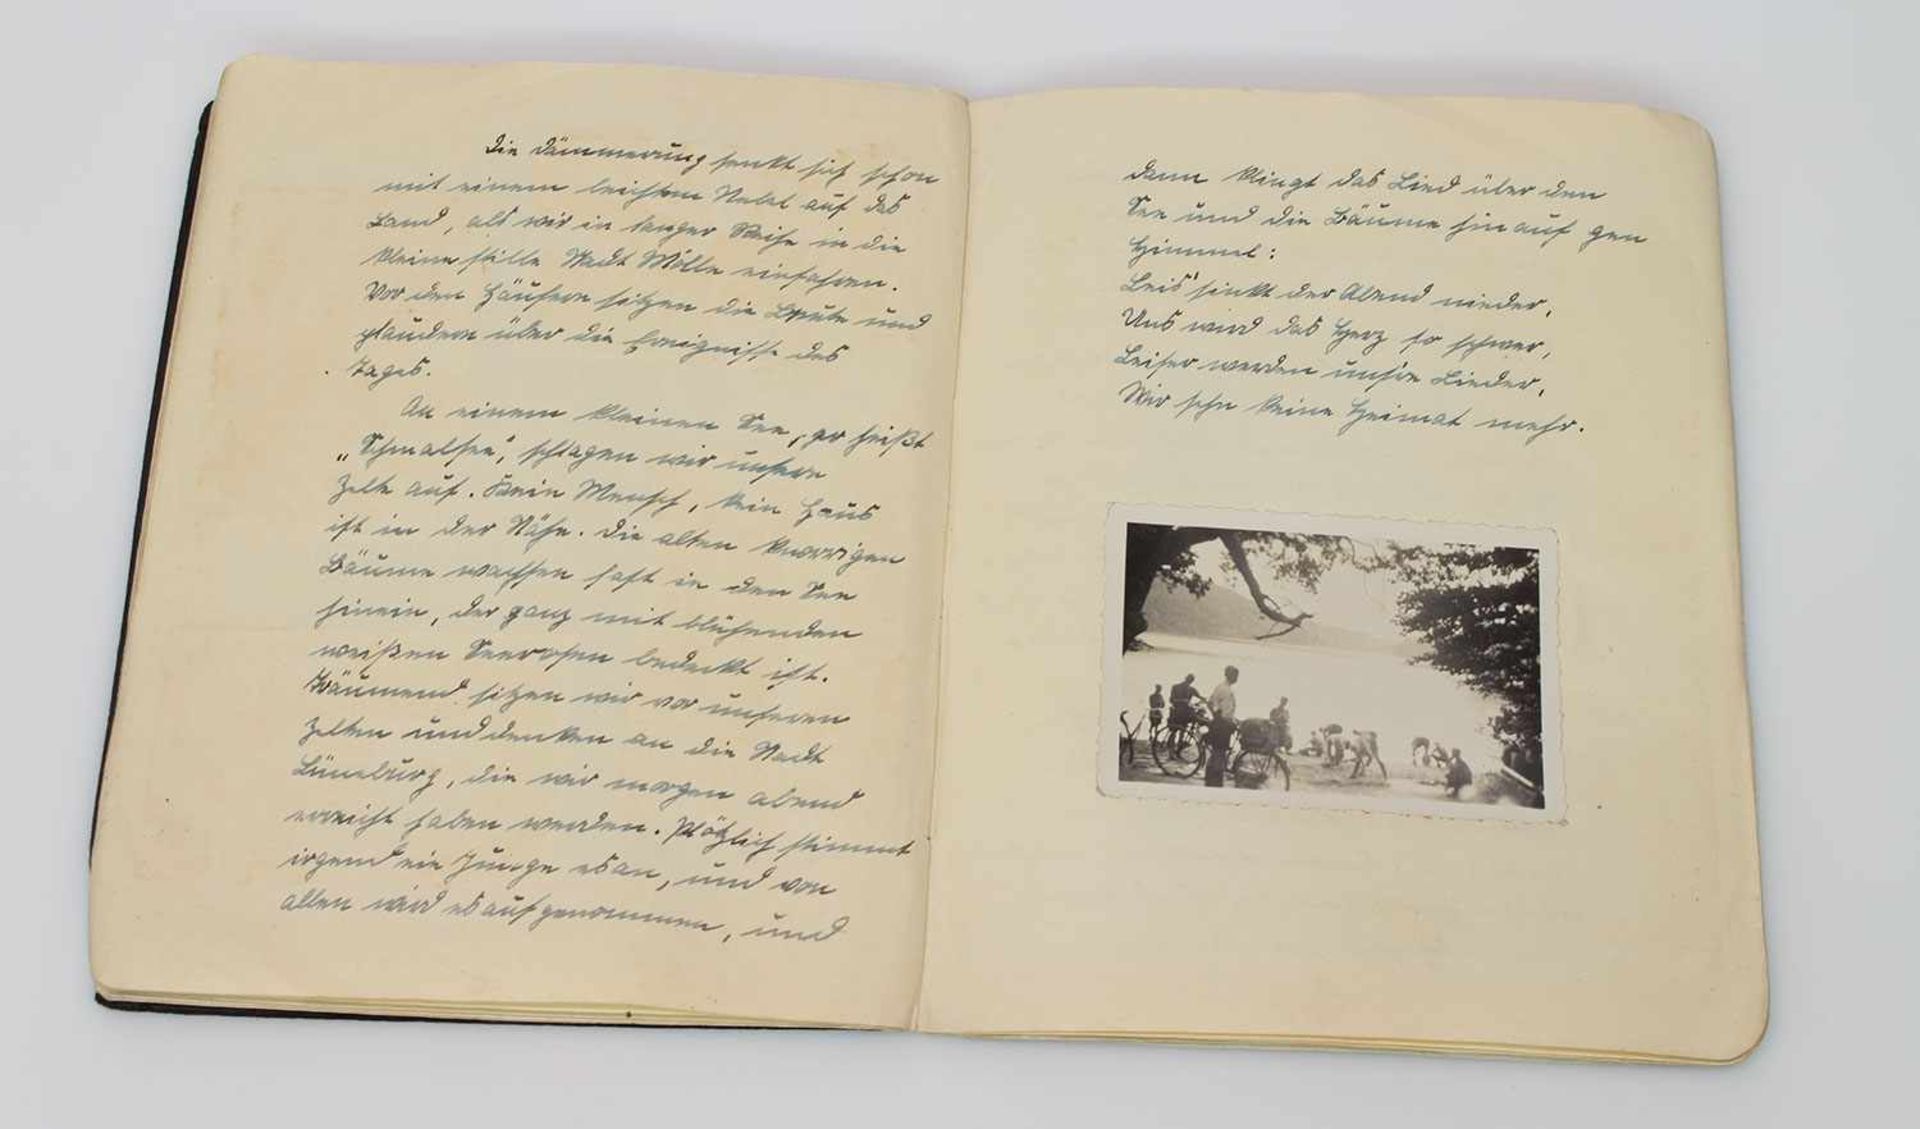 Die Dämmerung senkt sich schon
mit einem leichten Nebel auf das
Land, als wir in langer Reihe in die
kleine stille Stadt Mölln einfahren.
Vor den Häusern sitzen die Leute und
plaudern über die Ereignisse des
Tages.
An einem kleinen See, er heißt
„Schmalsee“, schlagen wir unsere
Zelte auf. Kein Mensch, kein Haus
ist in der Nähe. Die alten knorrigen
Bäume wachsen fast in den See
hinein, der ganz mit blühenden
weißen Seerosen bedeckt ist.
Träumend sitzen wir vor unseren
Zelten und denken an die Stadt
Lüneburg, die wir morgen abend
erreicht haben werden. Plötzlich stimmt
irgend ein Junge es an, und von
allen wird es aufgenommen, und
dann klingt das Lied über den
See und die Bäume hinauf gen
Himmel:
Leis' sinkt der Abend nieder,
Uns wird das Herz so schwer,
Leiser werden unsre Lieder,
Wir sehn keine Heimat mehr.